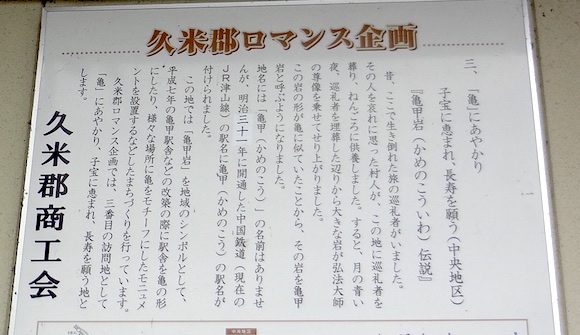 久米郡ロマンス企画
三、「亀」にあやかり
子宝に恵まれ、長寿を願う（中央地区）
『亀甲岩（かめのこういわ）伝説』
昔、ここで生き倒れた旅の巡礼者がいました。
その人を哀れに思った村人が、この地に巡礼者を
葬り、ねんごろに供養しました。すると、月の青い
夜、巡礼者を埋葬した辺りから大きな岩が弘法大師
の尊像を乗せてせり上がりました。
この岩の形が亀に似ていたことから、その岩を亀甲
岩と呼ぶようになりました。
地名には「亀甲（かめのこう）」の名前はありませ
んが、明治三十一年に開通した中国鉄道（現在の
ＪＲ津山線）の駅名に亀甲（かめのこう）の駅名が
付けられました。
この地では「亀甲岩」を地域のシンボルとして、
平成七年の亀甲駅舎などの改築の際に駅舎を亀の形
にしたり、様々な場所に亀をモチーフにしたモニュメ
ントを設置するなどしたまちづくりを行っています。
久米郡ロマンス企画では、三番目の訪問地として
「亀」にあやかり、子宝に恵まれ、長寿を願う地と
します。
久米郡商工会